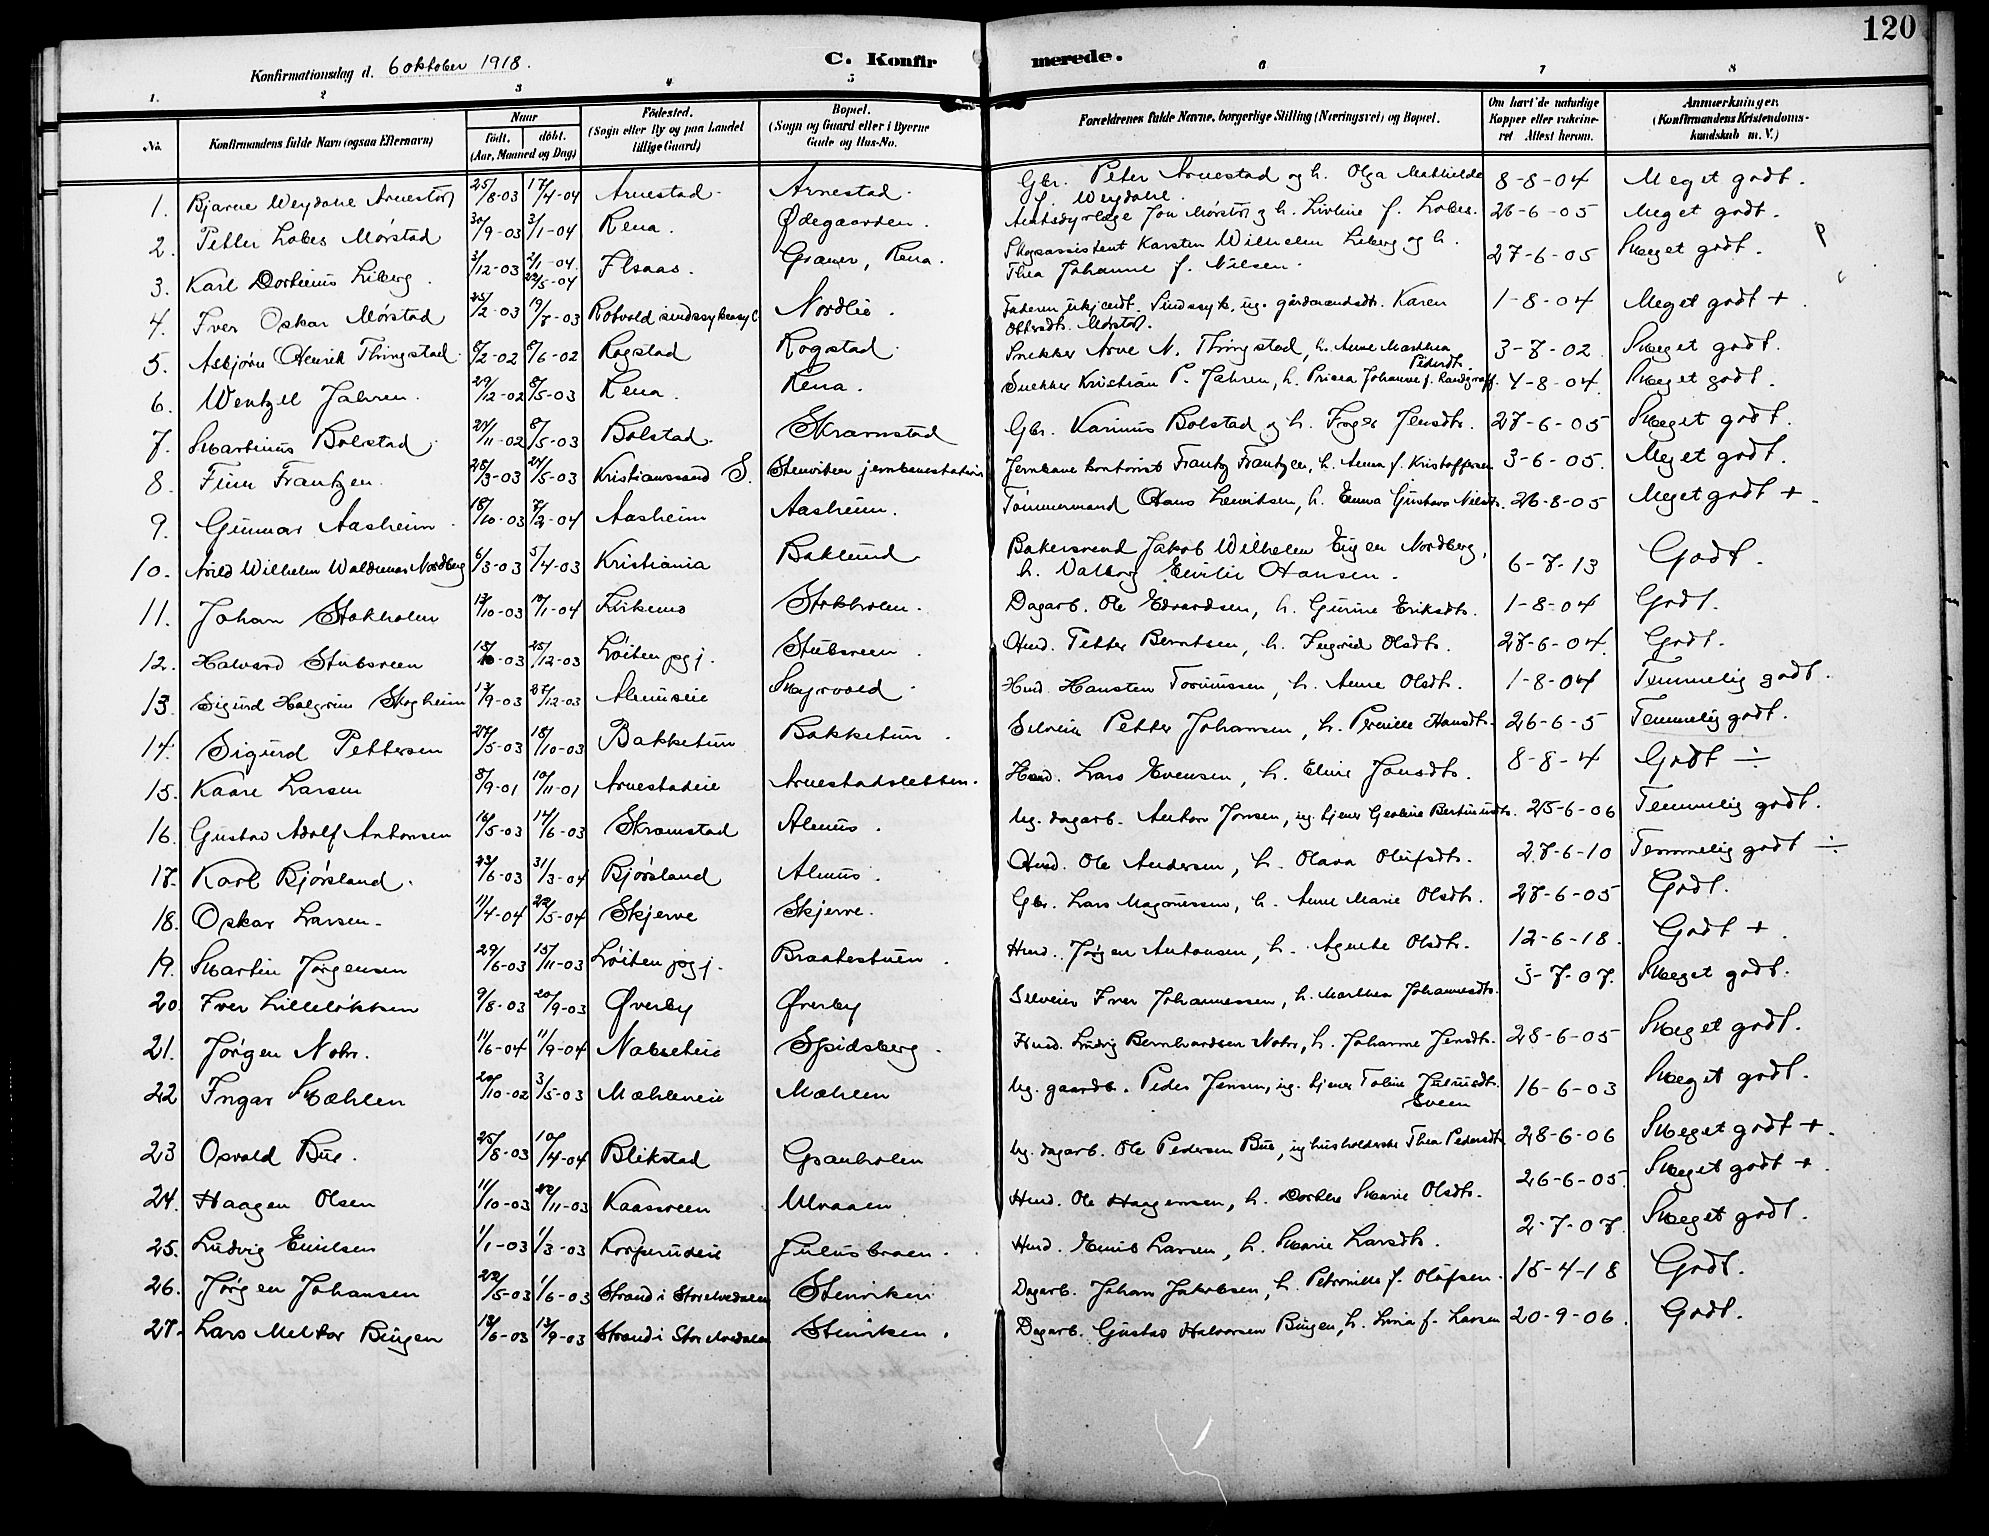 120
Konfirmationsdag d. 6 oktober 1918. C. Konfirmerede.
1. 2. 3. 4. 5. 6. 7. 8.
No. Konfirmandens fulde Navn (ogsaa Efternavn) Naar født. døbt. (Aar, Maaned og Dag) Fødested. (Sogn eller By og paa Landet tillige Gaard) Bopæl. (Sogn og Gaard eller i Byerne Gade og Hus-No. Forældrenes fulde Navne, borgerlige Stilling (Næringsvei) og Bopæl. Om havt de naturlige Kopper eller vakcineret Attest herom. Anmærkninger. (Konfirmandens Kristendomskundskab m. V.)
1. Bjarne Weydahl Arnestad 25/8-03 17/4-04 Arnestad. Arnestad. Gbr. Peter Arnestad og h. Olga Mathilde f. Weydahl. 8-8-04 Meget godt.
2. Petter Mørstad 30/9-03 3/1-04 Rena. Ødegaarden. Jon Mørstad og h. f. 26-6-05 Meget godt.
3. Karl Liberg. 3/12-03 Græner, Rena. Skogassistent Karsten Wilhelm Liberg og h. Thea Johanne f. Nilsen. 27-6-05 Meget godt.
4. Iver Oskar Mørstad 25/2-03 19/7-03 Rotvold sindssykeasyl Nordlie. Faderen ukjendt. Sindssyk, ug. gårdmandsdt. Karen Mørstad. 1-8-04 Meget godt +.
5. Asbjørn Henrik Thingstad. 8/6-02 Rogstad Rogstad. Snekker Arne N. Thingstad, h. Anne Marthea Pedersdt. 3-7-02. Meget godt.
6. Wentzel Jahren. 29/12-02 8/5-03 Rena. Rena. Snekker Kristian P. Jahren, h. Johanne f. 4-8-04. Meget godt.
7. Martinus Bolstad. 8/5-03 Bolstad. Skramstad Gbr. Karinus Bolstad og h. Inger Jensdt. 27-6-05 Meget godt.
8. Finn Frantzen. 25/3-03 24/5-03 Kristianssand S. Stenviken jernbanestation Jernbanekontorist Frantz Frantzen, h. Anna f. Kristoffersen 3-6-05. Meget godt.
9. Gunnar Aasheim. 18/10-03 7/2-04 Aasheim Aasheim. Tømmermand Hans Lauritsen, h. Emma Gustava Nilsdt. 26-8-05 Meget godt +.
10. Arild Wilhelm Waldemar Nordberg 6/3-03 5/4-03 Kristiania Baklund Bakersvend Jakob Wilhelm Eugen Nordberg, h. Valborg Emilie Hansen. 6-7-13 Godt.
11. Johan Stokholen 10/1-04 Stokholen. Dagarb. Ole Edvardsen, h. Gurine Eriksdt. 1-8-04 Godt.
12. Halvard Stubsveen 25/12-03 Løiten pgj. Stubsveen. Husd. Petter Berntsen, h. Ingrid Olsdt. 27-6-04. Godt.
13. Sigurd Halgrim Skogheim 13/9-03 27/12-03 Almuseie Skyrvold. Husd. Hansten h. Anne Olsdt. 1-8-04 Temmelig godt.
14. Sigurd Pettersen 27/5-03 18/10-03 Bakketun Bakketun. Selveier Petter Johansen, h. Pernille Hansdt. 26-6-5 Temmelig godt.
15. Kaare Larsen 8/9-01 10/11-01 Arnestadeie Arnestadsletten. Husd. Lars Evensen, h. Eline Jonsdt. 8-8-4 Godt ÷
16. Gustav Adolf Antonsen 16/5-03 14/6-03 Skramstad Almus. Ug. dagarb. Anton Jonsen, ug. tjener 25-6-06 Temmelig godt.
17. Karl Bjørsland. 23/6-03 31/3-04 Bjørsland Almus. Husd. Ole Andersen, h. Olava Olufsdt. 27-6-10 Temmelig godt ÷
18. Oskar Larsen. 11/4-04 22/5-04 Skjerve Skjerve. Gbr. Lars Magnussen, h. Anne Marie Olsdt. 27-6-05 Godt.
19. Martin Jørgensen 29/6-03 15/11-03 Løiten pgj. Braatestuen. Husd. Jørgen Antonsen, h. Agnete Olsdt. 12-6-18. Godt +.
20. Iver Lilleløkken 9/8-03 20/9-03 Øverby Øverby Selveier Iver Johannessen, h. Marthea Johannesdt. 3-7-07. Meget godt.
21. Jørgen Nohr. 11/6-04 11/9-04 Nabseteie Spidsberg. Husd. Ludvig Bernhardsen Nohr, h. Johanne Jensdt. 28-6-05 Meget godt.
22 Ingar Mæhlen 20/10-02 3/5-03 Mæhleneie Mæhlen Ug. gaardb. Peder Jensen, ug. tjener Tobine Sveen 16-6-03 Meget godt.
23 Osvald Bue. 25/8-03 10/4-04 Blikstad Granholen Ug. dagarb. Ole Pedersen Bue, ug husholderske Thea Pedersdt. 28-6-06 Meget godt +.
24. Haagen Olsen 11/10-03 22/11-03 Kaasveen Moaaen Husd. Ole Haagensen, h. Dorthea Marie Olsdt. 26-6-05. Meget godt +.
25. Ludvig Emilsen 1/1-03 1/3-03 Korperudeie Julusbraen. Husd. Emil Larsen, h. Marie Larsdt. 2-7-07. Meget godt.
26. Jørgen Johansen 22/5-03 1/6-03 Strand i Storelvedalen Stenviken Dagarb. Johan Jakobsen, h. Petronille f. Olufsen. 15-4-18 Godt.
27. Lars Melkior Bingen 13/9-03 Strand i Storelvedalen Stenviken. Dagarb. Gustav Halvorsen Bingen, h. Livia f. Larsen 20-9-06. Godt.